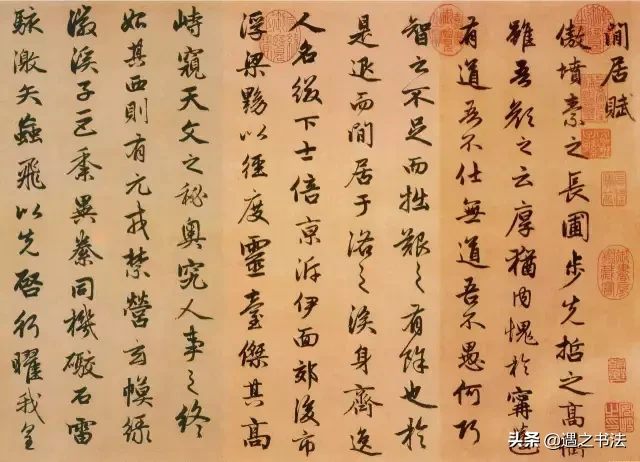 閒居賦
傲墳素之長圃步先哲之高衢
雖吾顔之云厚猶内愧於寗蘧
有道吾不仕無道吾不愚何巧
智之不足而拙艱之有餘也於
是退而閒居于洛之涘身齊逸
人名綴下士倍京泝伊面郊後市
浮梁黝以徑度靈臺傑其高
峙窺天文之秘奧究人事之終
始其西則有元戎禁營玄幙緑
徽溪子巨黍異絭同機礮石雷
駭激矢蝱飛以先啓行曜我皇
头条 @遇之书法